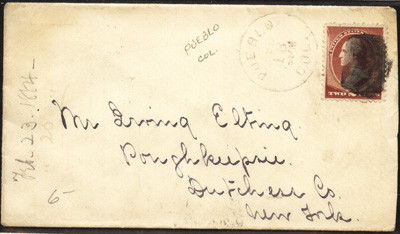 PUEBLO
COL.
PUEBLO
COLO
UNITED STATES
TWO
Feb. 23. 1884-
Mr Irving Elting
Poughkeepsie.
Dutchess Co.
New York.
6-